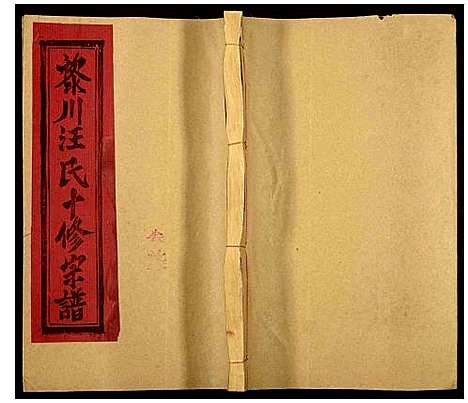 黎川汪氏十修宗譜